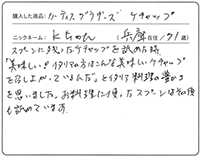 購入した商品: カーティスブラザーズ ケチャップ
ニックネーム: Kちゃん (兵庫 在住 / 71歳)
スプーンに残ったケチャップを舐めた時
「美味しい!イタリアの方はこんな美味しいケチャップ
を召し上がっているんだ」とイタリア料理の豊かさ
を思いました。お料理に使ったスプンは最後
も舐めています。